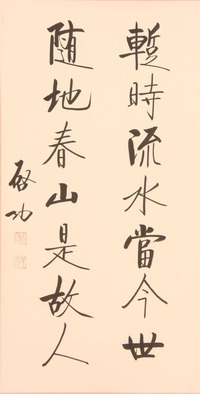 暫時流水當今世
随地春山是故人
啟功